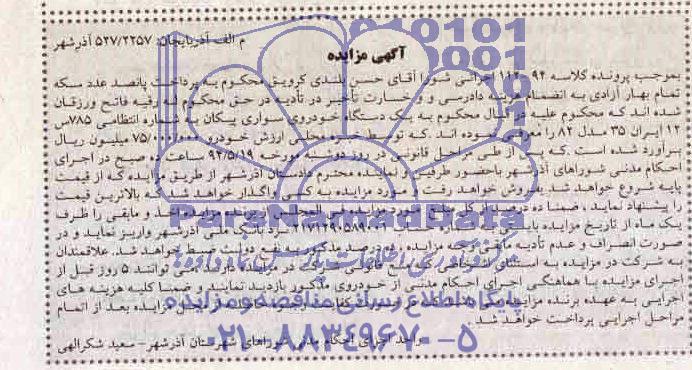 م الف آذربایجان: ۵۲۷/۲۲۵۷ آذرشهر
آگهی مزایده
بموجب پرونده کلاسه ۹۴-۱۱۲ اجرائی شورا آقای حسن بلندی کرویق محکوم به پرداخت پانصد عدد سکه
تمام بهار آزادی به انضمام هزینه دادرسی و خسارت تأخیر در تأدیه در حق محکوم له رقیه فاتح ورزقان
شده اند که محکوم علیه در قبال محکوم به یک دستگاه خودروی سواری پیکان به شماره انتظامی ۷۸۵س
۱۲ ایران ۳۵ مدل ۸۲ را معرفی نموده اند .که توسط خبره محلی ارزش خودرو ۷۵/۰۰۰/۰۰۰ میلیون ریال
برآورد شده است .که پس از طی مراحل قانونی در روز دوشنبه مورخه ۹۴/۵/۱۹ ساعت ده صبح در اجرای
احکام مدنی شوراهای آذرشهر باحضور طرفین و نماینده محترم دادستان آذرشهر از طریق مزایده که از قیمت
پایه شروع خواهد شد بفروش خواهد رفت و مورد مزایده به کسی واگذار خواهد شد که بالاترین قیمت
را پیشنهاد نماید ، ضمنا ده درصد از کل مبلغ مورد مزایده فی المجلس از برنده مزایده اخذ و مابقی را ظرف
یک ماه از تاریخ مزایده بایستی به شماره حساب ۲۱۷۱۲۹۰۵۸۹۰۰۲ نزد بانک ملی آذرشهر واریز نماید و در
صورت انصراف و عدم تأدیه مابقی وجه مزایده ، ده درصد مذکور به نفع دولت ضبط خواهد شد. علاقمندان
به شرکت در مزایده به استثنای اشخاصی که منع قانونی شرکت در مزایده دارند می توانند ۵ روز قبل از
اجرای مزایده با هماهنگی اجرای احکام مدنی از خودروی مذکور بازدید نمایند و ضمنا کلیه هزینه های
اجرایی به عهده برنده مزایده مزایده بعد از اتمام
مراحل اجرایی پرداخت خواهد شد .
واحد اجرای احکام مدنی شوراهای شهرستان آذرشهر – سعید شکرالهی
010101
0001
ParsNamadData
مرکز فرآوری اطلاعات پارس نماد داده ها
پایگاه اطلاع رسانی مناقصه و مزایده
۰۲۱-۸۸۳۴۹۶۷۰-۵